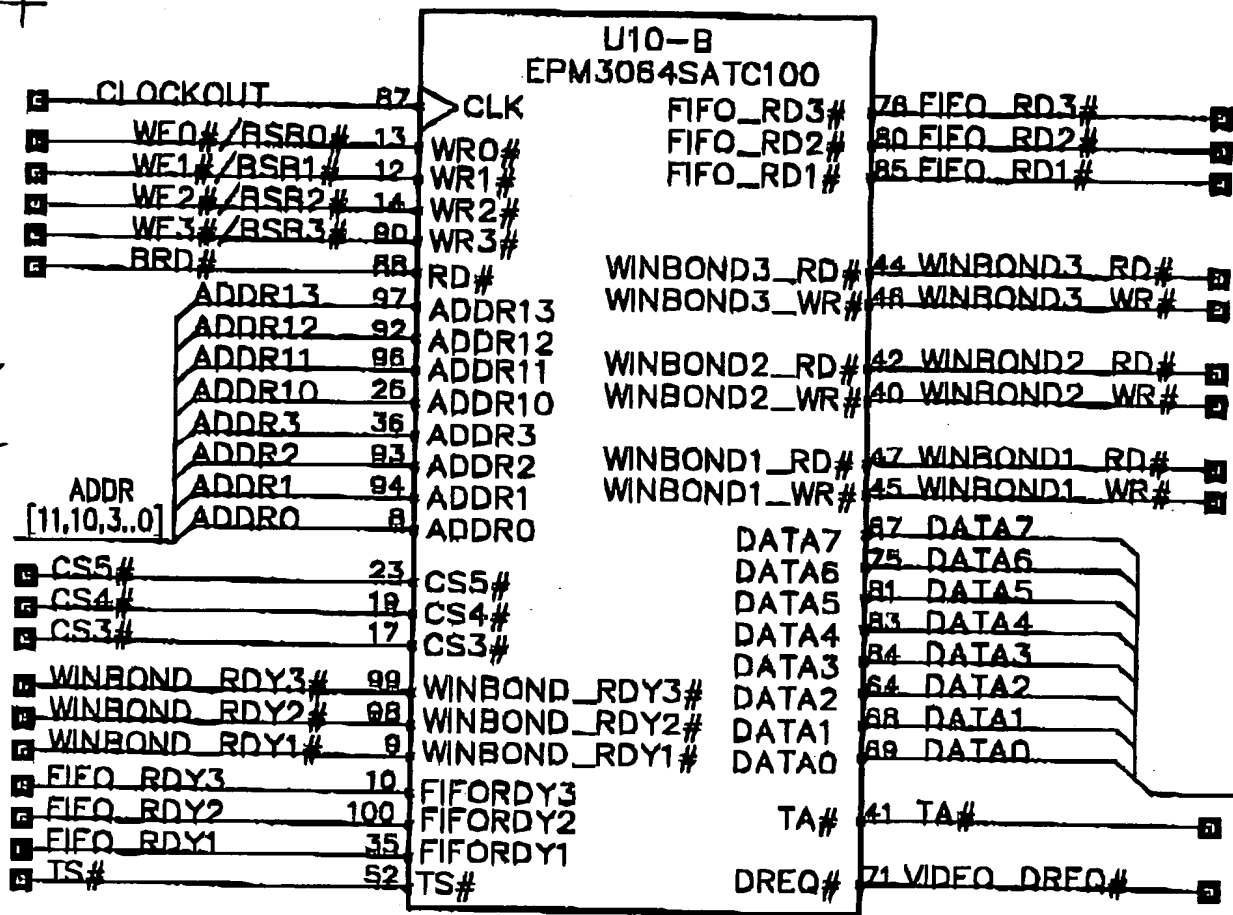 U10-B
EPM3064SATC100
CLOCKOUT 87 CLK
WE0#/BSB0# 13 WR0#
WE1#/BSB1# 12 WR1#
WE2#/BSB2# 14 WR2#
WE3#/BSB3# 90 WR3#
BRD# 88 RD#
ADDR13 97 ADDR13
ADDR12 92 ADDR12
ADDR11 96 ADDR11
ADDR10 25 ADDR10
ADDR3 36 ADDR3
ADDR2 93 ADDR2
ADDR1 94 ADDR1
ADDR0 8 ADDR0
ADDR
[11,10,3..0]
CS5# 23 CS5#
CS4# 19 CS4#
CS3# 17 CS3#
WINBOND_RDY3# 99 WINBOND_RDY3#
WINBOND_RDY2# 98 WINBOND_RDY2#
WINBOND_RDY1# 9 WINBOND_RDY1#
FIFO_RDY3 10 FIFORDY3
FIFO_RDY2 100 FIFORDY2
FIFO_RDY1 35 FIFORDY1
TS# 52 TS#
FIFO_RD3# 76 FIFO_RD3#
FIFO_RD2# 80 FIFO_RD2#
FIFO_RD1# 85 FIFO_RD1#
WINBOND3_RD# 44 WINBOND3_RD#
WINBOND3_WR# 46 WINBOND3_WR#
WINBOND2_RD# 42 WINBOND2_RD#
WINBOND2_WR# 40 WINBOND2_WR#
WINBOND1_RD# 47 WINBOND1_RD#
WINBOND1_WR# 45 WINBOND1_WR#
DATA7 67 DATA7
DATA6 75 DATA6
DATA5 81 DATA5
DATA4 83 DATA4
DATA3 84 DATA3
DATA2 64 DATA2
DATA1 68 DATA1
DATA0 69 DATA0
TA# 41 TA#
DREQ# 71 VIDEO_DREQ#